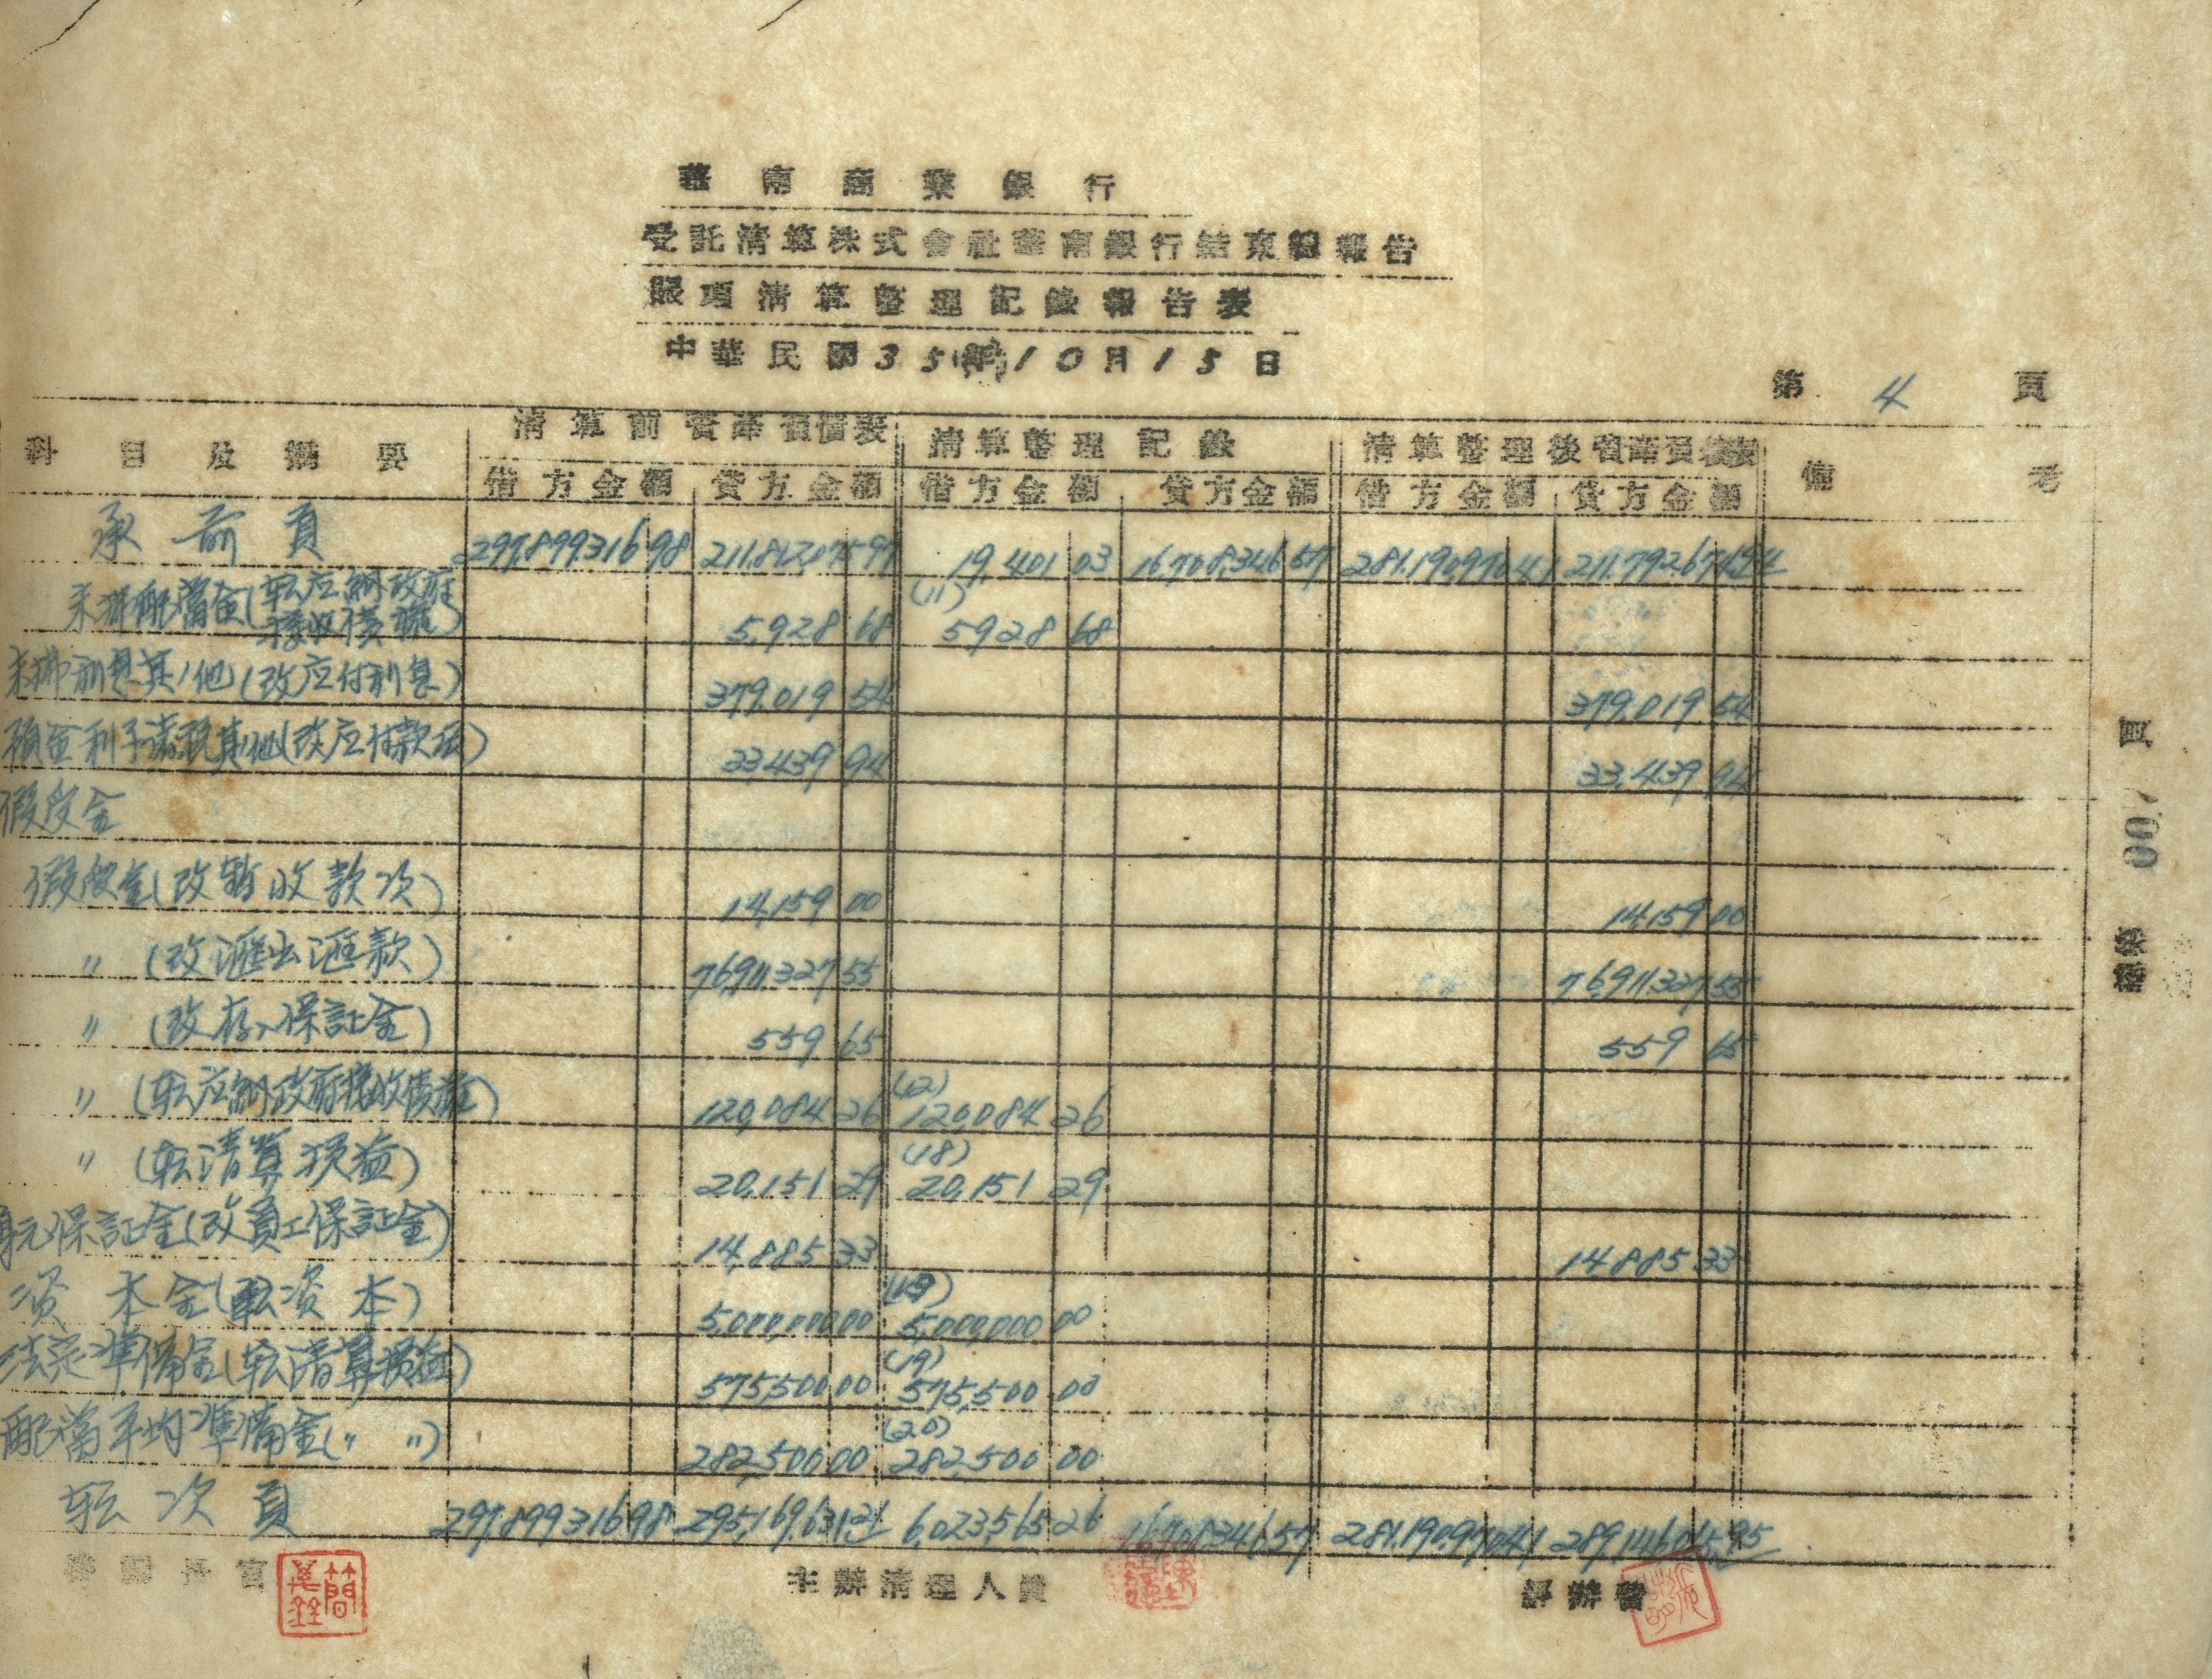 華南商業銀行
受託清算株式會社華南銀行結束總報告
賬項清算整理記錄報告表
中華民國35年10月15日
第 4 頁
科目及摘要 清算前資產負債表 清算整理記錄 清算整理後資產負債表 備考
借方金額 貸方金額 借方金額 貸方金額 借方金額 貸方金額
承前頁 297,899,316 98 211,812,075 97 19,401 03 16,708,346 57 281,190,970 41 211,792,674 94
未拂配當金(転应納政府接收債權) 5,928 68 (11) 5,928 68
未拂利息其他(改应付利息) 379,019 54 379,019 54
預金利子諸税其他(改应付款項) 33,439 94 33,439 94
假受金
假受金(改暫收款項) 14,159 00 14,159 00
〃 (改滙出滙款) 76,911,327 55 76,911,327 55
〃 (改存入保証金) 559 65 559 65
〃 (転应納政府接收債權) 120,084 26 (12) 120,084 26
〃 (転清算損益) 20,151 29 (18) 20,151 29
身元保証金(改員工保証金) 14,885 33 14,885 33
資本金(転資本) 5,000,000 00 (13) 5,000,000 00
法定準備金(転清算損益) 575,500 00 (19) 575,500 00
配當平均準備金(〃 〃) 282,500 00 (20) 282,500 00
転次頁 297,899,316 98 295,169,631 21 6,023,565 26 16,708,346 57 281,190,970 41 289,146,065 95
主辦清理人員